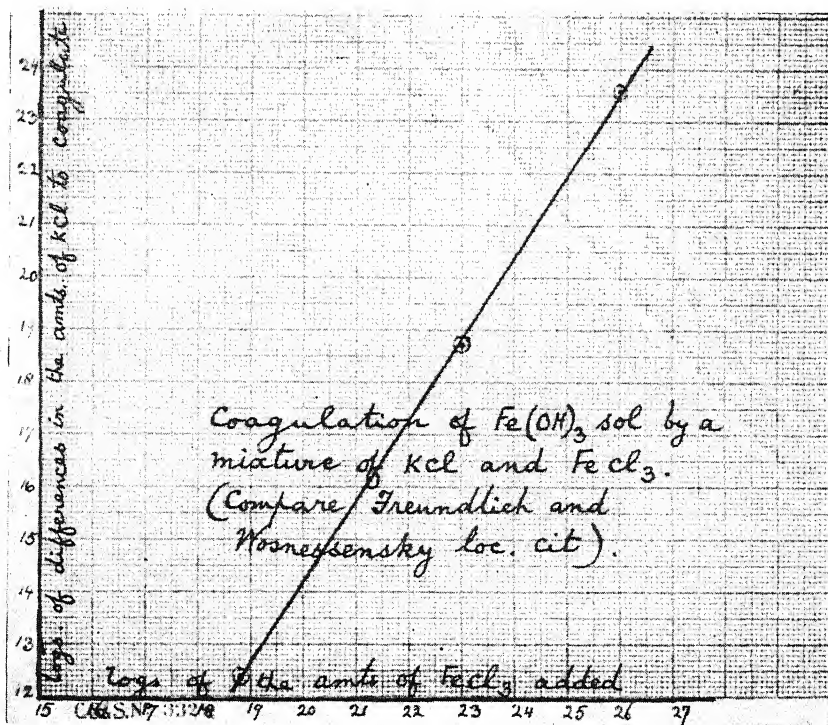 logs. of differences in the amts. of KCl to coagulate
24
23
21
21
20
19
18
17
16
15
14
13
12
Coagulation of Fe(OH)₃ sol by a
mixture of KCl and FeCl₃.
(Compare Freundlich and
Wosnessensky loc. cit).
logs of the amts of FeCl₃ added
15 19 20 21 22 23 24 25 26 27